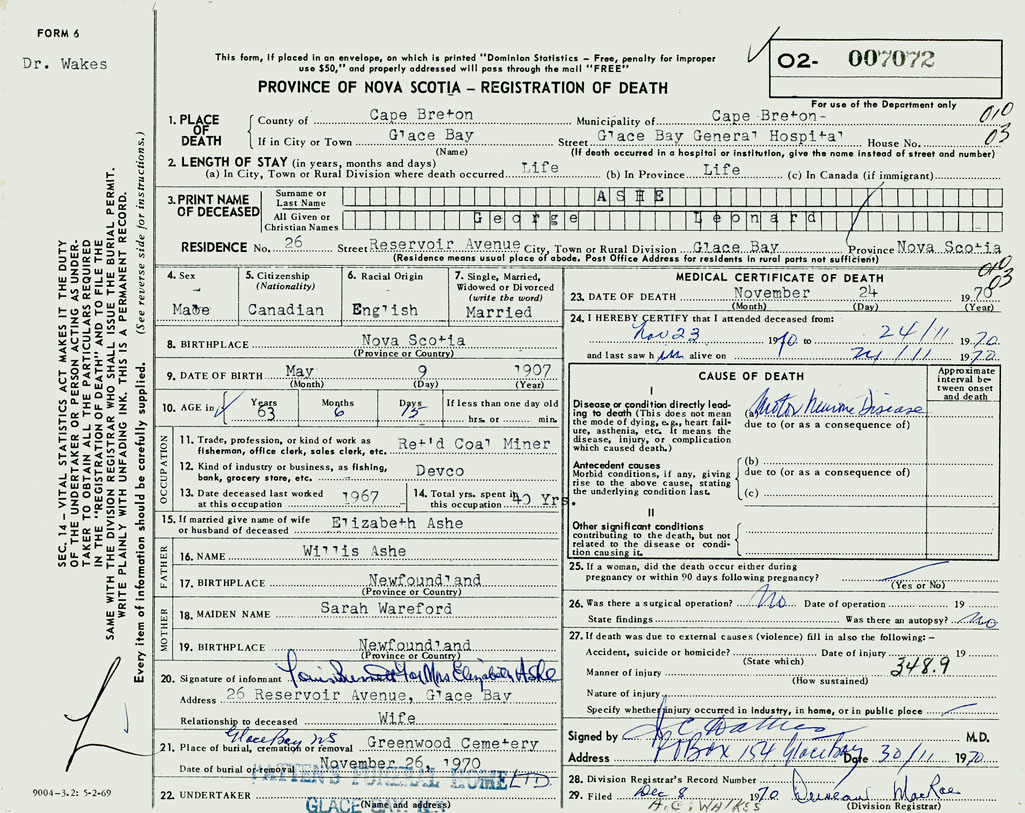 FORM 6
Dr. Wakes
This form, if placed in an envelope, on which is printed "Dominion Statistics – Free, penalty for improper
use $50," and properly addressed will pass through the mail "FREE"
PROVINCE OF NOVA SCOTIA – REGISTRATION OF DEATH
O2- 007072
For use of the Department only
010
03
1. PLACE OF DEATH
County of Cape Breton Municipality of Cape Breton-
If in City or Town Glace Bay Street Glace Bay General Hospital House No.
(Name) (If death occurred in a hospital or institution, give the name instead of street and number)
2. LENGTH OF STAY (in years, months and days)
(a) In City, Town or Rural Division where death occurred Life (b) In Province Life (c) In Canada (if immigrant)
3. PRINT NAME OF DECEASED
Surname or Last Name ASHE
All Given or Christian Names George Leonard
RESIDENCE No. 26 Street Reservoir Avenue City, Town or Rural Division Glace Bay Province Nova Scotia
(Residence means usual place of abode. Post Office Address for residents in rural parts not sufficient)
010
03
4. Sex
5. Citizenship (Nationality) Canadian
6. Racial Origin English
7. Single, Married, Widowed or Divorced (write the word) Married
8. BIRTHPLACE Nova Scotia
(Province or Country)
9. DATE OF BIRTH May 9 1907
(Month) (Day) (Year)
10. AGE in Years 63 Months 6 Days 15 If less than one day old hrs. or min.
OCCUPATION
11. Trade, profession, or kind of work as fisherman, office clerk, sales clerk, etc. Ret'd Coal Miner
12. Kind of industry or business, as fishing, bank, grocery store, etc. Devco
13. Date deceased last worked at this occupation 1967
14. Total yrs. spent in this occupation 40 Yrs.
15. If married give name of wife or husband of deceased Elizabeth Ashe
FATHER
16. NAME Willis Ashe
17. BIRTHPLACE Newfoundland
(Province or Country)
MOTHER
18. MAIDEN NAME Sarah Wareford
19. BIRTHPLACE Newfoundland
(Province or Country)
20. Signature of informant For Mrs Elizabeth Ashe
Address 26 Reservoir Avenue, Glace Bay
Relationship to deceased Wife
Glace Bay NS
21. Place of burial, cremation or removal Greenwood Cemetery
Date of burial or removal November 26, 1970
PATTEN'S FUNERAL HOME LTD
22. UNDERTAKER GLACE BAY, N.S.
(Name and address)
MEDICAL CERTIFICATE OF DEATH
23. DATE OF DEATH November 24 1970
(Month) (Day) (Year)
24. I HEREBY CERTIFY that I attended deceased from:
Nov 23 1970 to 24/11 1970
and last saw h im alive on 24/11 1970
CAUSE OF DEATH
Approximate interval between onset and death
I
Disease or condition directly leading to death (This does not mean the mode of dying, e.g., heart failure, asthenia, etc. It means the disease, injury, or complication which caused death.)
(a) Motor Neurone Disease
due to (or as a consequence of)
Antecedent causes
Morbid conditions, if any, giving rise to the above cause, stating the underlying condition last.
(b)
due to (or as a consequence of)
(c)
II
Other significant conditions contributing to the death, but not related to the disease or condition causing it.
25. If a woman, did the death occur either during
pregnancy or within 90 days following pregnancy?
(Yes or No)
26. Was there a surgical operation? No Date of operation 19
State findings Was there an autopsy? No
27. If death was due to external causes (violence) fill in also the following: –
Accident, suicide or homicide? Date of injury 19
(State which)
Manner of injury 348.9
(How sustained)
Nature of injury
Specify whether injury occurred in industry, in home, or in public place
Signed by M.D.
Address P O Box 154 Glace Bay Date 30/11 1970
28. Division Registrar's Record Number
29. Filed Dec 8 1970 Duncan MacRae
(Division Registrar)
A.C. WALKES
SEC. 14 – VITAL STATISTICS ACT MAKES IT THE DUTY
OF THE UNDERTAKER OR PERSON ACTING AS UNDER-
TAKER TO OBTAIN ALL THE PARTICULARS REQUIRED
IN THE "REGISTRATION OF DEATH" AND TO FILE THE
SAME WITH THE DIVISION REGISTRAR WHO SHALL ISSUE THE BURIAL PERMIT.
WRITE PLAINLY WITH UNFADING INK. THIS IS A PERMANENT RECORD.
Every item of information should be carefully supplied. (See reverse side for instructions.)
9004-3.2: 5-2-69